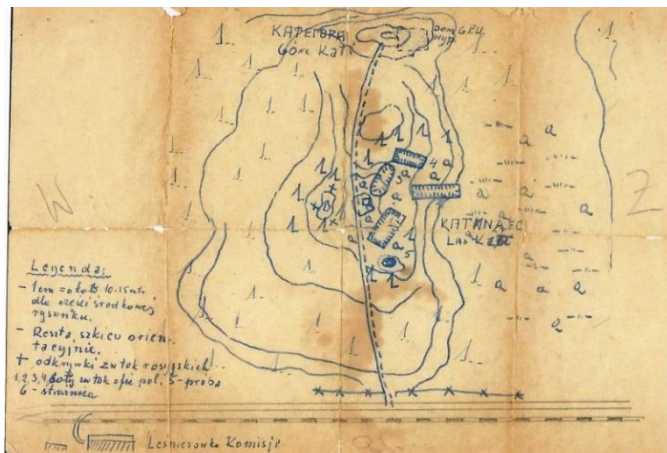 KATEIORA
Góra Kati
Dom G.P.U.
W
Z
KATYNAEC
Las Kat
B
Legenda:
- 1cm = około 10-15 mtr.
dla części środkowej
rysunku.
- Reszta szkicu orien-
tacyjnie.
+ odkrywki zwłok rosyjskich
1,2,3,4, doły zwłok ofic. pol. 5-próba
6 - strażnica
Leśniczówka Komisji